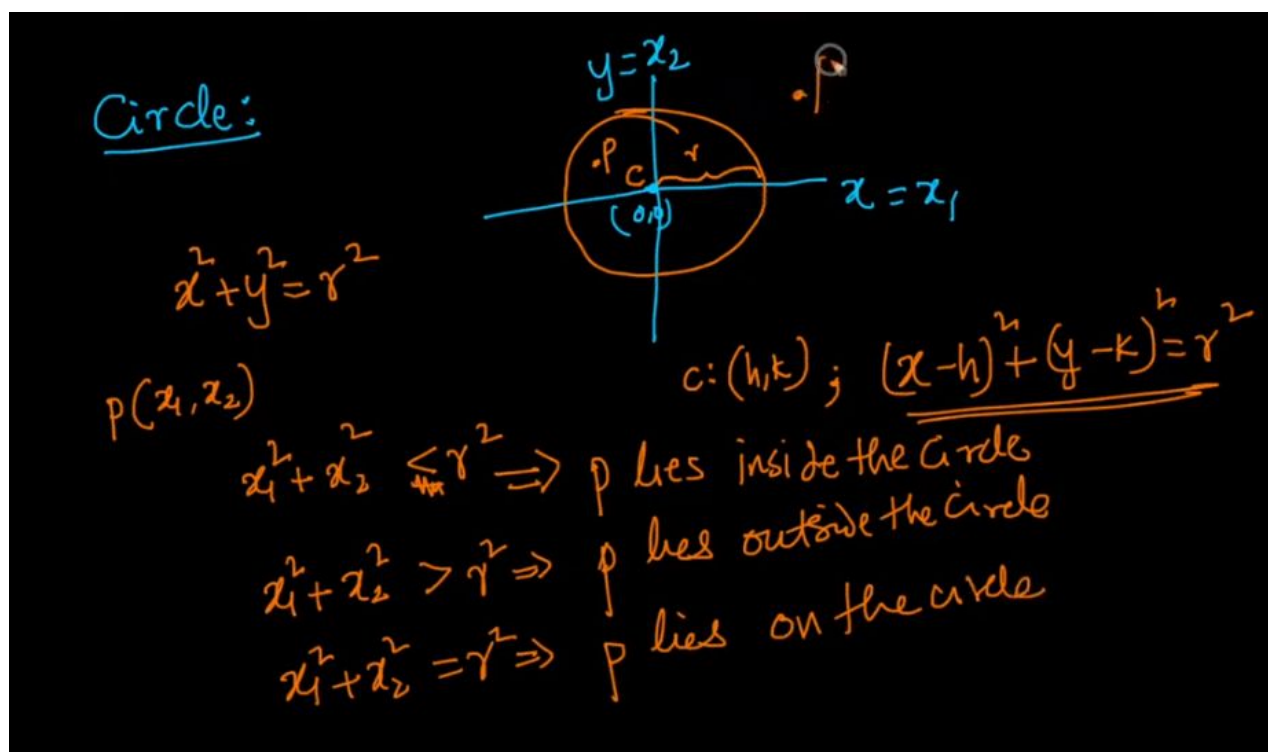 Circle:
y = x₂
.P
.P
C
r
(0,0)
x = x₁
x² + y² = r²
c: (h,k) ; (x-h)² + (y-k)² = r²
p(x₁, x₂)
x₁² + x₂² < r² ⇒ p lies inside the circle
x₁² + x₂² > r² ⇒ p lies outside the circle
x₁² + x₂² = r² ⇒ p lies on the circle